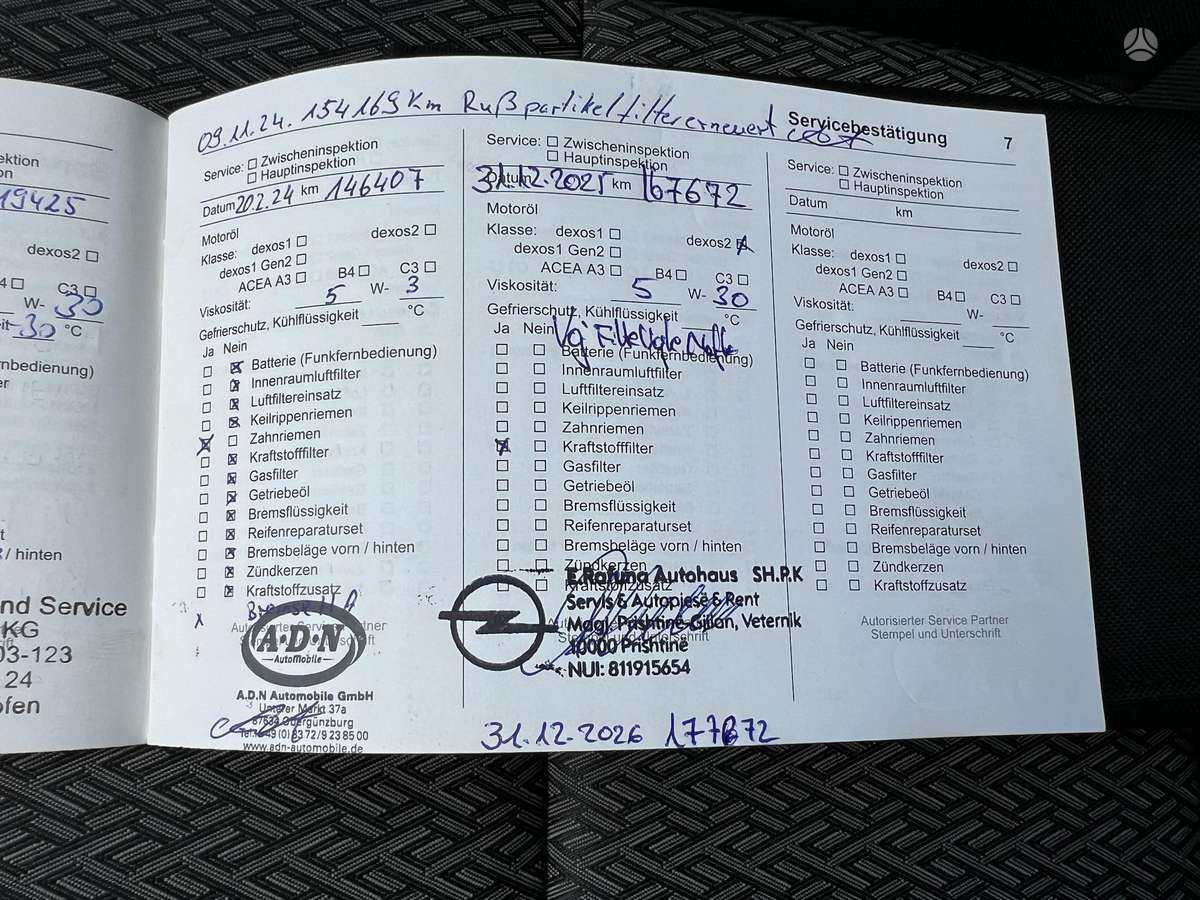 09.11.24. 154169 Km Rußpartikelfilter erneuert
Servicebestätigung 7
ektion
on
19425
dexos2 ☐
4 ☐ C3 ☐
W- 30
it 30 °C
rnbedienung)
er
t
/ hinten
nd Service
KG
03-123
24
ofen
Service: ☐ Zwischeninspektion
☐ Hauptinspektion
Datum 20.2.24 km 146407
Motoröl
Klasse: dexos1 ☐ dexos2 ☐
dexos1 Gen2 ☐
ACEA A3 ☐ B4 ☐ C3 ☐
Viskosität: 5 W- 3
Gefrierschutz, Kühlflüssigkeit ____ °C
Ja Nein
☐ ☒ Batterie (Funkfernbedienung)
☐ ☒ Innenraumluftfilter
☐ ☒ Luftfiltereinsatz
☐ ☒ Keilrippenriemen
☒ ☐ Zahnriemen
☐ ☒ Kraftstofffilter
☐ ☒ Gasfilter
☐ ☒ Getriebeöl
☐ ☒ Bremsflüssigkeit
☐ ☒ Reifenreparaturset
☐ ☒ Bremsbeläge vorn / hinten
☐ ☒ Zündkerzen
☐ ☒ Kraftstoffzusatz
x Bremse HA
Autorisierter Service Partner
A·D·N
AutoMobile
A.D.N Automobile GmbH
Unterer Markt 37a
87634 Obergünzburg
Tel. +49 (0) 83 72/9 23 85 00
www.adn-automobile.de
Service: ☐ Zwischeninspektion
☐ Hauptinspektion
Datum 31.12.2025 km 167672
Motoröl
Klasse: dexos1 ☐ dexos2 ☒
dexos1 Gen2 ☐
ACEA A3 ☐ B4 ☐ C3 ☐
Viskosität: 5 W- 30
Gefrierschutz, Kühlflüssigkeit ____ °C
Ja Nein Vaj Filte
☐ ☐ Batterie (Funkfernbedienung)
☐ ☐ Innenraumluftfilter
☐ ☐ Luftfiltereinsatz
☐ ☐ Keilrippenriemen
☐ ☐ Zahnriemen
☒ ☐ Kraftstofffilter
☐ ☐ Gasfilter
☐ ☐ Getriebeöl
☐ ☐ Bremsflüssigkeit
☐ ☐ Reifenreparaturset
☐ ☐ Bremsbeläge vorn / hinten
☐ ☐ Zündkerzen
☐ ☐ Kraftstoffzusatz
Stempel und Unterschrift
Autohaus SH.P.K
Servis & Autopjesë & Rent
Magj. Prishtinë-Gjilan, Veternik
10000 Prishtinë
NUI: 811915654
31.12.2026 177672
Service: ☐ Zwischeninspektion
☐ Hauptinspektion
Datum km
Motoröl
Klasse: dexos1 ☐ dexos2 ☐
dexos1 Gen2 ☐
ACEA A3 ☐ B4 ☐ C3 ☐
Viskosität: ____ W- ____
Gefrierschutz, Kühlflüssigkeit ____ °C
Ja Nein
☐ ☐ Batterie (Funkfernbedienung)
☐ ☐ Innenraumluftfilter
☐ ☐ Luftfiltereinsatz
☐ ☐ Keilrippenriemen
☐ ☐ Zahnriemen
☐ ☐ Kraftstofffilter
☐ ☐ Gasfilter
☐ ☐ Getriebeöl
☐ ☐ Bremsflüssigkeit
☐ ☐ Reifenreparaturset
☐ ☐ Bremsbeläge vorn / hinten
☐ ☐ Zündkerzen
☐ ☐ Kraftstoffzusatz
Autorisierter Service Partner
Stempel und Unterschrift